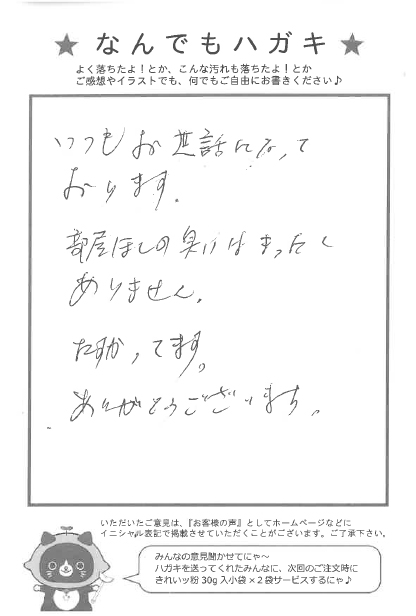 ★ なんでもハガキ ★
よく落ちたよ！とか、こんな汚れも落ちたよ！とか
ご感想やイラストでも、何でもご自由にお書きください♪
いつもお世話になって
おります。
部屋ほしの臭いはまったく
ありません。
たすかってます。
ありがとうございます。
いただいたご意見は、『お客様の声』としてホームページなどに
イニシャル表記で掲載させていただくことがございます。ご了承下さい。
みんなの意見聞かせてにゃ～
ハガキを送ってくれたみんなに、次回のご注文時に
きれいッ粉 30g 入小袋 × 2 袋サービスするにゃ♪